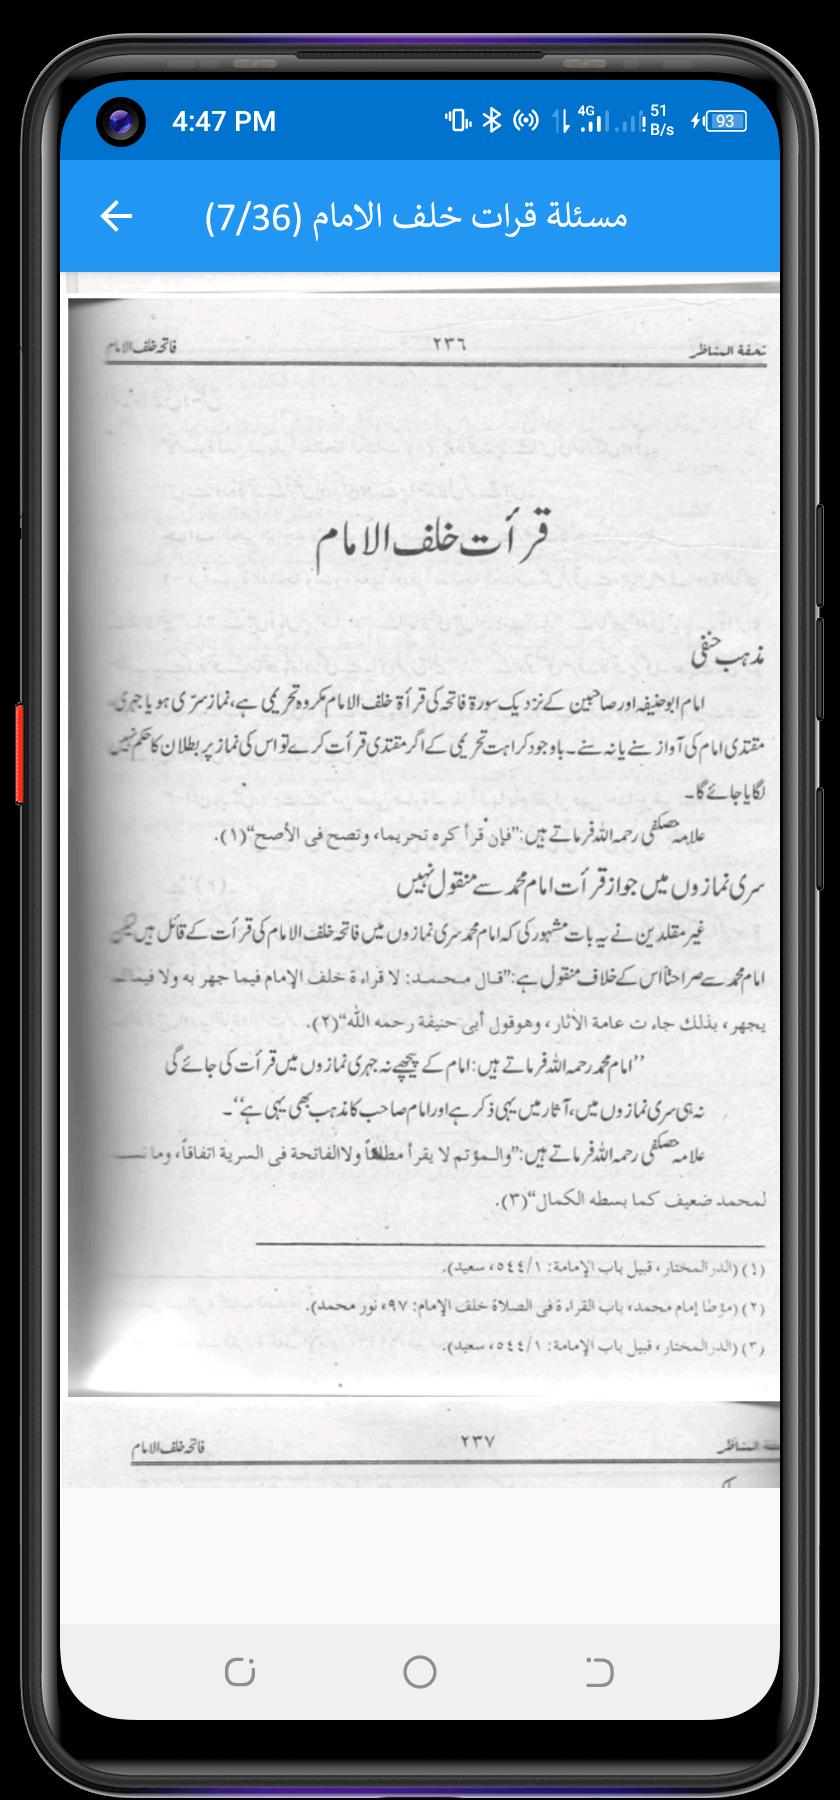 4:47 PM
4G
51 B/s
93
مسئلة قرات خلف الامام (7/36)
تحفة المناظر ٢٣٦ فاتحہ خلف الامام
قرأت خلف الامام
مذہب حنفی
امام ابوحنیفہ اور صاحبین کے نزدیک سورۃ فاتحہ کی قرأۃ خلف الامام مکروہ تحریمی ہے، نماز سرّی ہو یا جہری
مقتدی امام کی آواز سنے یا نہ سنے۔ باوجود کراہت تحریمی کے اگر مقتدی قرأت کرے تو اس کی نماز پر بطلان کا حکم نہیں
لگایا جائے گا۔
علامہ حصکفی رحمہ اللہ فرماتے ہیں: ”فإن قرأ کره تحریما، وتصح فی الأصح“ (١).
سری نمازوں میں جواز قرأت امام محمد سے منقول نہیں
غیر مقلدین نے یہ بات مشہور کی کہ امام محمد سری نمازوں میں فاتحہ خلف الامام کی قرأت کے قائل ہیں لیکن
امام محمد سے صراحتاً اس کے خلاف منقول ہے: ”قال محمد: لا قراءة خلف الإمام فیما جهر به ولا فیما
یجهر، بذلك جاء ت عامة الآثار، وهو قول أبی حنیفة رحمه الله“ (٢).
’’امام محمد رحمہ اللہ فرماتے ہیں: امام کے پیچھے نہ جہری نمازوں میں قرأت کی جائے گی
نہ ہی سری نمازوں میں، آثار میں یہی ذکر ہے اور امام صاحب کا مذہب بھی یہی ہے‘‘۔
علامہ حصکفی رحمہ اللہ فرماتے ہیں: ”والمؤتم لا یقرأ مطلقاً ولا الفاتحة فی السریة اتفاقاً، وما
لمحمد ضعیف کما بسطه الکمال“ (٣).
(١) (الدر المختار، قبیل باب الإمامة: ٥٤٤/١، سعید).
(٢) (مؤطا إمام محمد، باب القراءة فی الصلاة خلف الإمام: ٩٧، نور محمد).
(٣) (الدر المختار، قبیل باب الإمامة: ٥٤٤/١، سعید).
المناظر ٢٣٧ فاتحہ خلف الامام